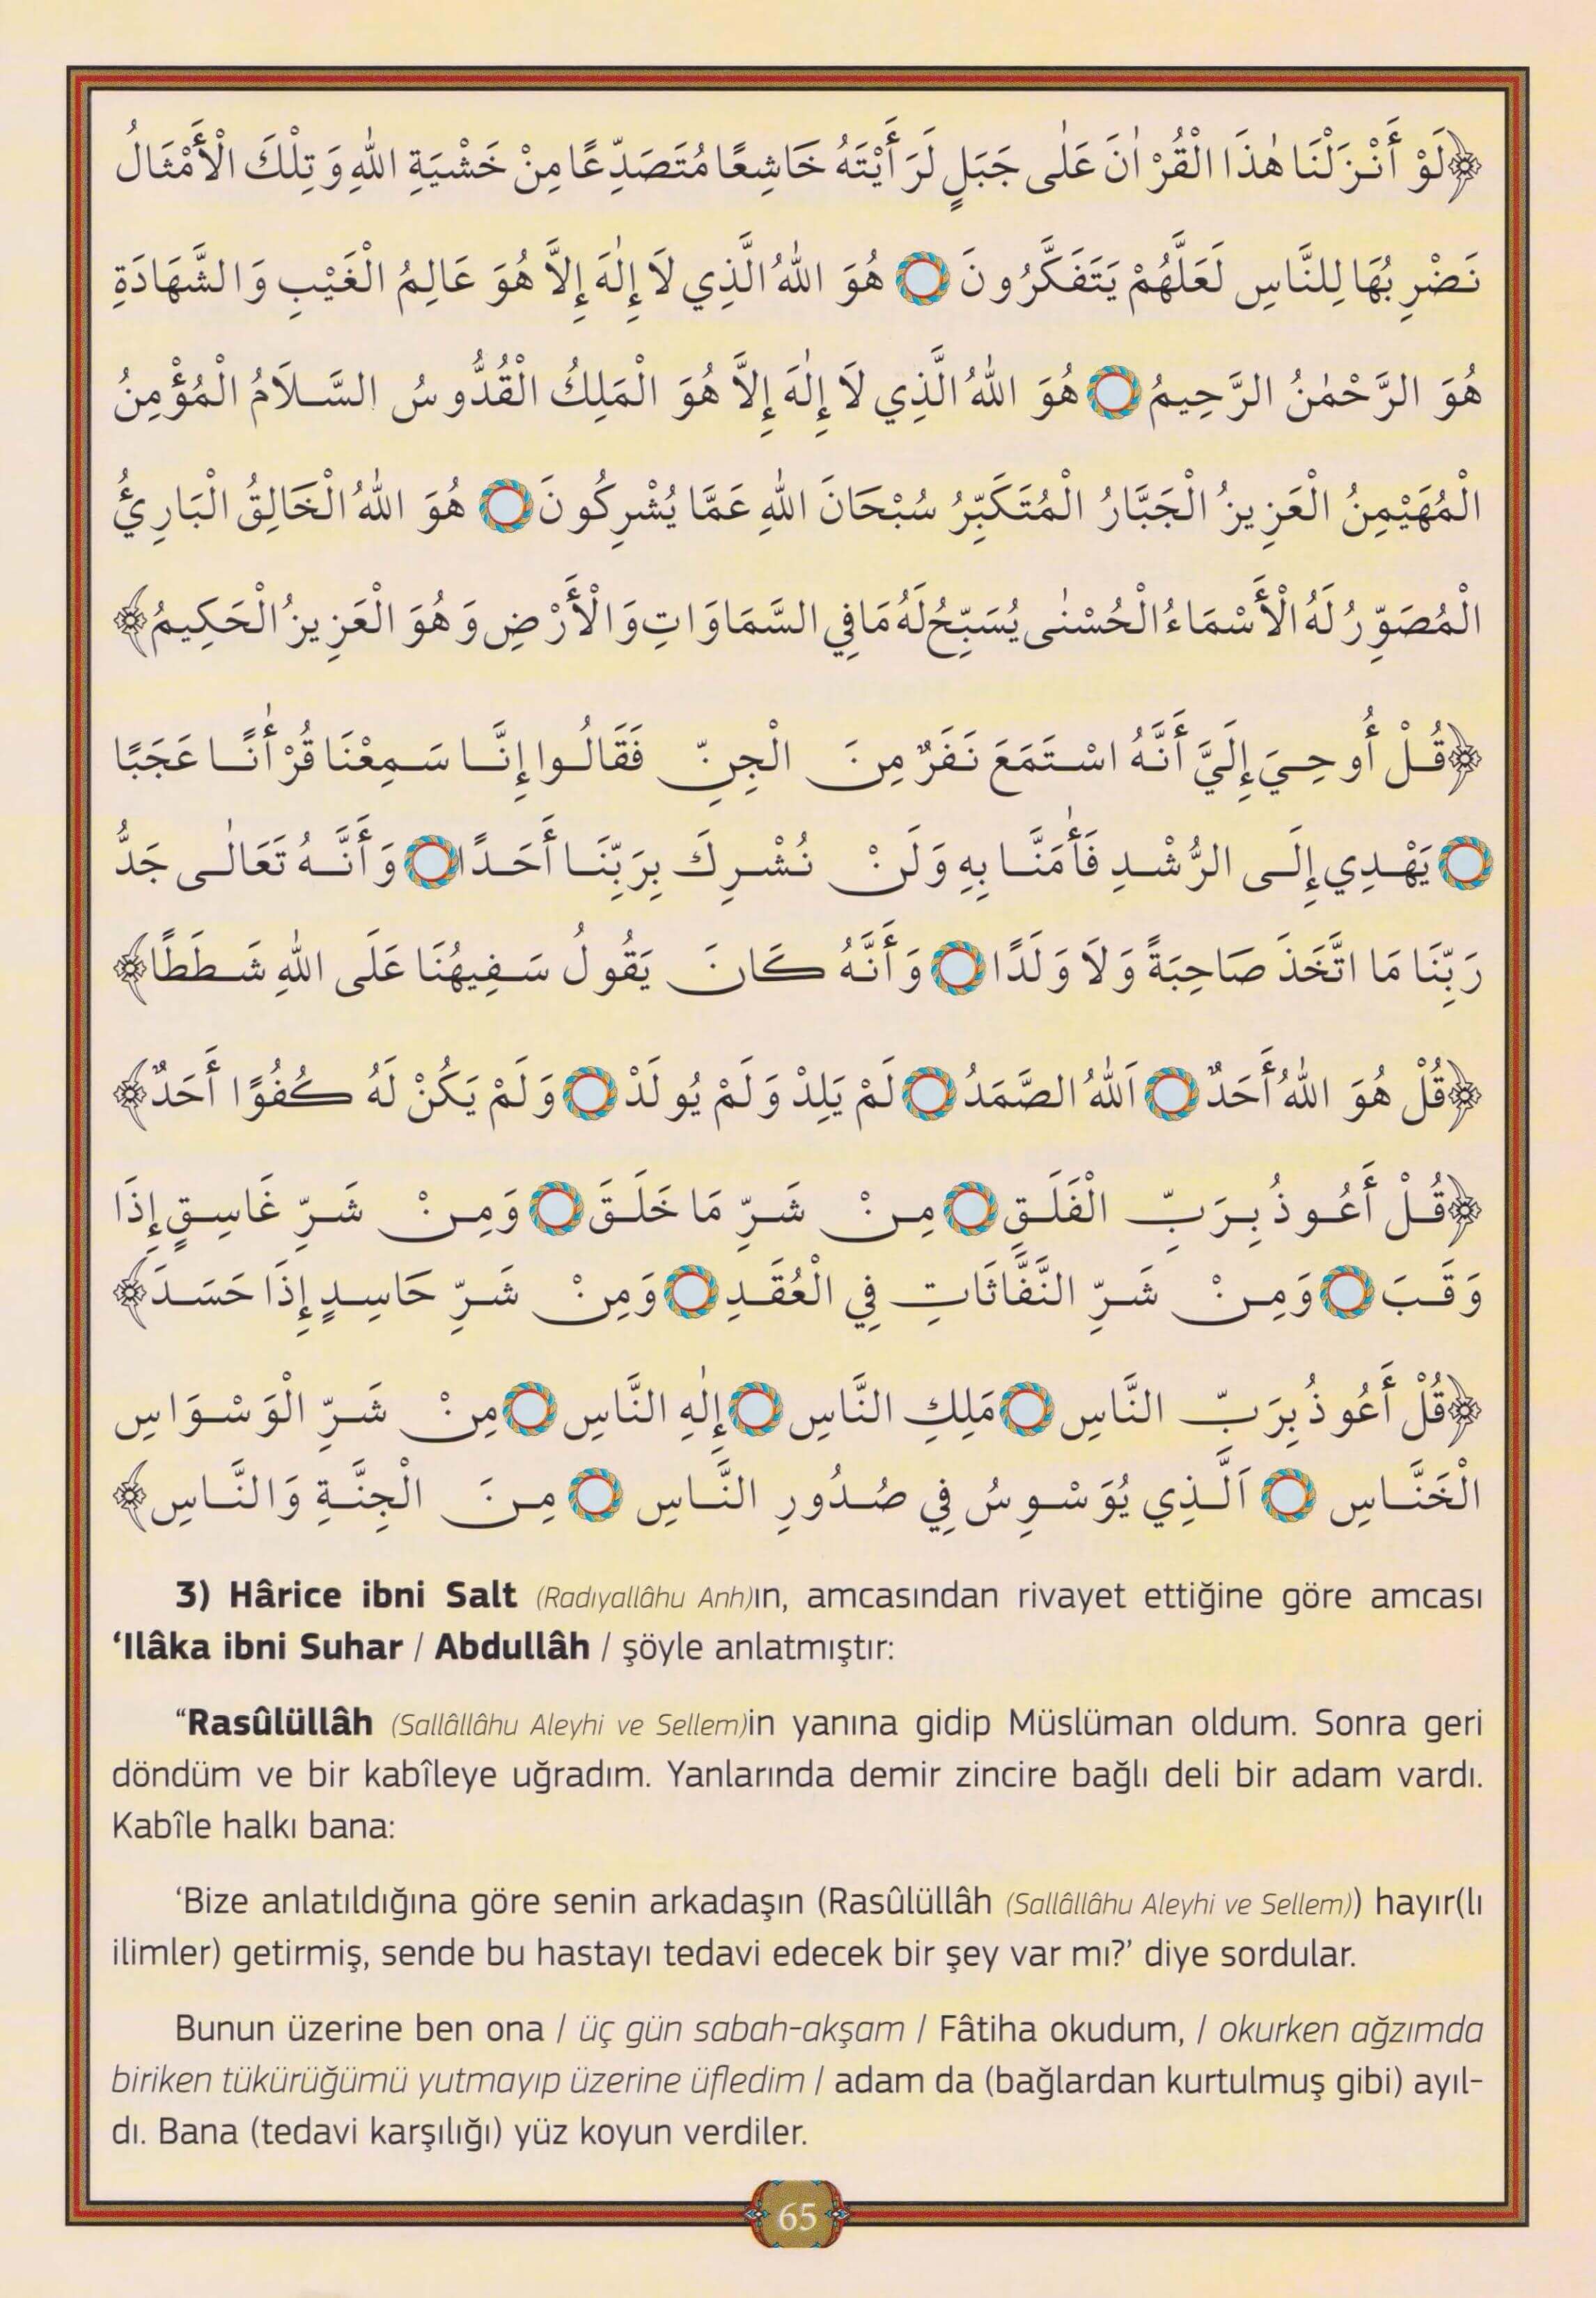 ﴿لَوْ أَنْزَلْنَا هٰذَا الْقُرْاٰنَ عَلٰى جَبَلٍ لَرَأَيْتَهُ خَاشِعًا مُتَصَدِّعًا مِنْ خَشْيَةِ اللهِ وَتِلْكَ الْأَمْثَالُ
نَضْرِبُهَا لِلنَّاسِ لَعَلَّهُمْ يَتَفَكَّرُونَ هُوَ اللهُ الَّذِي لَا إِلٰهَ إِلاَّ هُوَ عَالِمُ الْغَيْبِ وَالشَّهَادَةِ
هُوَ الرَّحْمٰنُ الرَّحِيمُ هُوَ اللهُ الَّذِي لَا إِلٰهَ إِلاَّ هُوَ الْمَلِكُ الْقُدُّوسُ السَّلاَمُ الْمُؤْمِنُ
الْمُهَيْمِنُ الْعَزِيزُ الْجَبَّارُ الْمُتَكَبِّرُ سُبْحَانَ اللهِ عَمَّا يُشْرِكُونَ هُوَ اللهُ الْخَالِقُ الْبَارِئُ
الْمُصَوِّرُ لَهُ الْأَسْمَاءُ الْحُسْنٰى يُسَبِّحُ لَهُ مَا فِي السَّمَاوَاتِ وَالْأَرْضِ وَهُوَ الْعَزِيزُ الْحَكِيمُ﴾
﴿قُلْ أُوحِيَ إِلَيَّ أَنَّهُ اسْتَمَعَ نَفَرٌ مِنَ الْجِنِّ فَقَالُوا إِنَّا سَمِعْنَا قُرْأٰنًا عَجَبًا
يَهْدِي إِلَى الرُّشْدِ فَأٰمَنَّا بِهِ وَلَنْ نُشْرِكَ بِرَبِّنَا أَحَدًا وَأَنَّهُ تَعَالٰى جَدُّ
رَبِّنَا مَا اتَّخَذَ صَاحِبَةً وَلَا وَلَدًا وَأَنَّهُ كَانَ يَقُولُ سَفِيهُنَا عَلَى اللهِ شَطَطًا﴾
﴿قُلْ هُوَ اللهُ أَحَدٌ اَللهُ الصَّمَدُ لَمْ يَلِدْ وَلَمْ يُولَدْ وَلَمْ يَكُنْ لَهُ كُفُوًا أَحَدٌ﴾
﴿قُلْ أَعُوذُ بِرَبِّ الْفَلَقِ مِنْ شَرِّ مَا خَلَقَ وَمِنْ شَرِّ غَاسِقٍ إِذَا
وَقَبَ وَمِنْ شَرِّ النَّفَّاثَاتِ فِي الْعُقَدِ وَمِنْ شَرِّ حَاسِدٍ إِذَا حَسَدَ﴾
﴿قُلْ أَعُوذُ بِرَبِّ النَّاسِ مَلِكِ النَّاسِ إِلٰهِ النَّاسِ مِنْ شَرِّ الْوَسْوَاسِ
الْخَنَّاسِ اَلَّذِي يُوَسْوِسُ فِي صُدُورِ النَّاسِ مِنَ الْجِنَّةِ وَالنَّاسِ﴾
3) Hârice ibni Salt (Radıyallâhu Anh)ın, amcasından rivayet ettiğine göre amcası
‘Ilâka ibni Suhar / Abdullâh / şöyle anlatmıştır:
“Rasûlüllâh (Sallâllâhu Aleyhi ve Sellem)in yanına gidip Müslüman oldum. Sonra geri
döndüm ve bir kabîleye uğradım. Yanlarında demir zincire bağlı deli bir adam vardı.
Kabîle halkı bana:
‘Bize anlatıldığına göre senin arkadaşın (Rasûlüllâh (Sallâllâhu Aleyhi ve Sellem)) hayır(lı
ilimler) getirmiş, sende bu hastayı tedavi edecek bir şey var mı?’ diye sordular.
Bunun üzerine ben ona / üç gün sabah-akşam / Fâtiha okudum, / okurken ağzımda
biriken tükürüğümü yutmayıp üzerine üfledim / adam da (bağlardan kurtulmuş gibi) ayıl-
dı. Bana (tedavi karşılığı) yüz koyun verdiler.
65